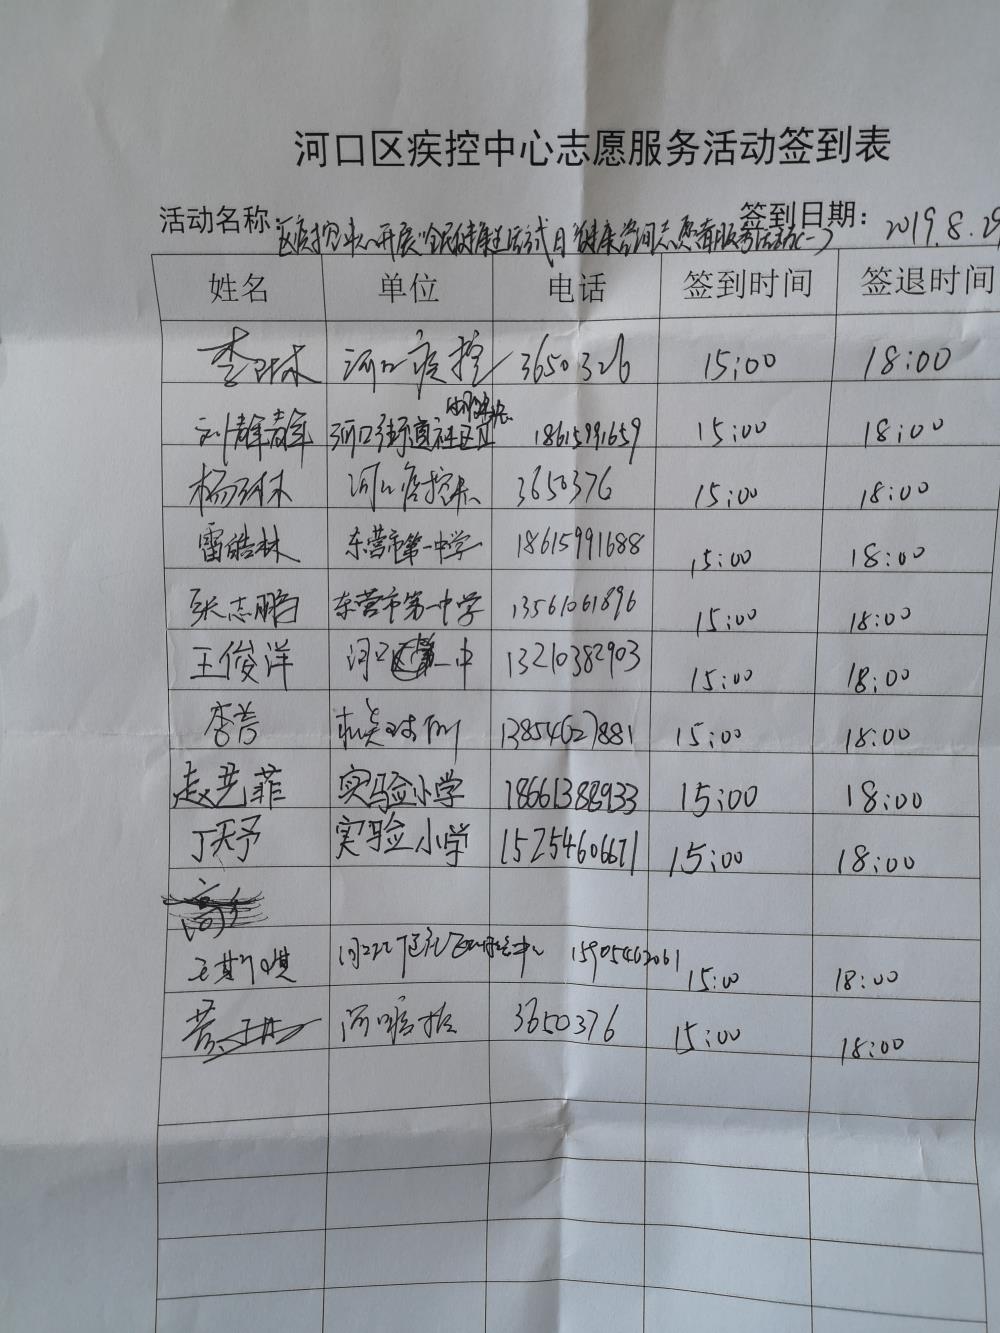 河口区疾控中心志愿服务活动签到表
活动名称：区疾控中心开展“全民健康生活方式日”健康咨询志愿者服务活动(一) 签到日期：2019.8.29
姓名 单位 电话 签到时间 签退时间
李 河口疾控 3650326 15:00 18:00
刘雅雅 河口街道社区 18615991659 15:00 18:00
杨琳 河口疾控中心 3650376 15:00 18:00
雷皓林 东营市第一中学 18615991688 15:00 18:00
张志鹏 东营市第一中学 13561061896 15:00 18:00
王俊洋 河口区第一中 13210382903 15:00 18:00
李芳 13854627881 15:00 18:00
赵艺菲 实验小学 18661388933 15:00 18:00
丁天予 实验小学 15254606671 15:00 18:00
王斯琪 15905462061 15:00 18:00
河口疾控 3650376 15:00 18:00